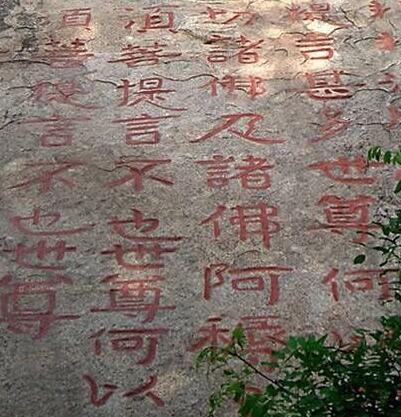 提言甚多世尊何
切諸佛及諸佛阿耨
須菩提言不也世尊何以
須菩提言不也世尊